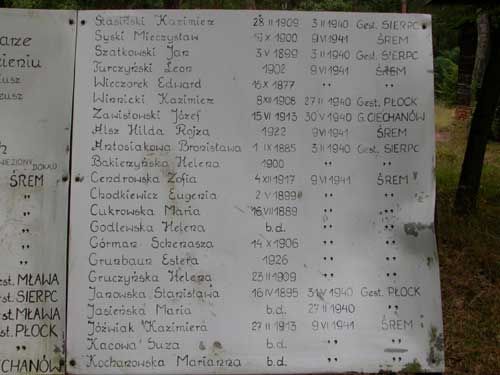 arze
ieniu
iusz
eusz
h
WIEZIONY
DOKĄD
ŚREM
"
"
"
"
"
est. MŁAWA
st. SIERPC
st. MŁAWA
st. PŁOCK
"
CIECHANÓW
Stasiński Kazimierz 28 II 1909 3 II 1940 Gest. SIERPC
Syski Mieczysław X 1900 9 VI 1941 ŚREM
Szatkowski Jan 3 V 1899 3 II 1940 Gest. SIERPC
Turczyński Leon 1902 9 VI 1941 ŚREM
Wieczorek Edward 15 X 1877 " "
Winnicki Kazimierz 8 XII 1908 27 II 1940 Gest. PŁOCK
Zawistowski Józef 15 VI 1913 30 V 1940 G. CIECHANÓW
Alsz Hilda Rojza 1922 9 VI 1941 ŚREM
Antosiakowa Bronisława 1 I 1885 3 II 1940 Gest. SIERPC
Bakierzyńska Helena 1900 " "
Cendrowska Zofia 4 XII 1917 9 VI 1941 ŚREM
Chodkiewicz Eugenia 2 V 1899 " "
Cukrowska Maria 16 VII 1889 " "
Godlewska Helena b.d. " "
Górman Schenasza 14 X 1906 " "
Grunbaun Estera 1926 " "
Gruczyńska Helena 23 II 1909 " "
Janowska Stanisława 16 IV 1895 1940 Gest. PŁOCK
Jasieńska Maria b.d. 27 II 1940 "
Jóźwiak Kazimiera 27 II 1913 9 VI 1941 ŚREM
Kacowa Suza b.d. " "
Kochanowska Marianna b.d. " "